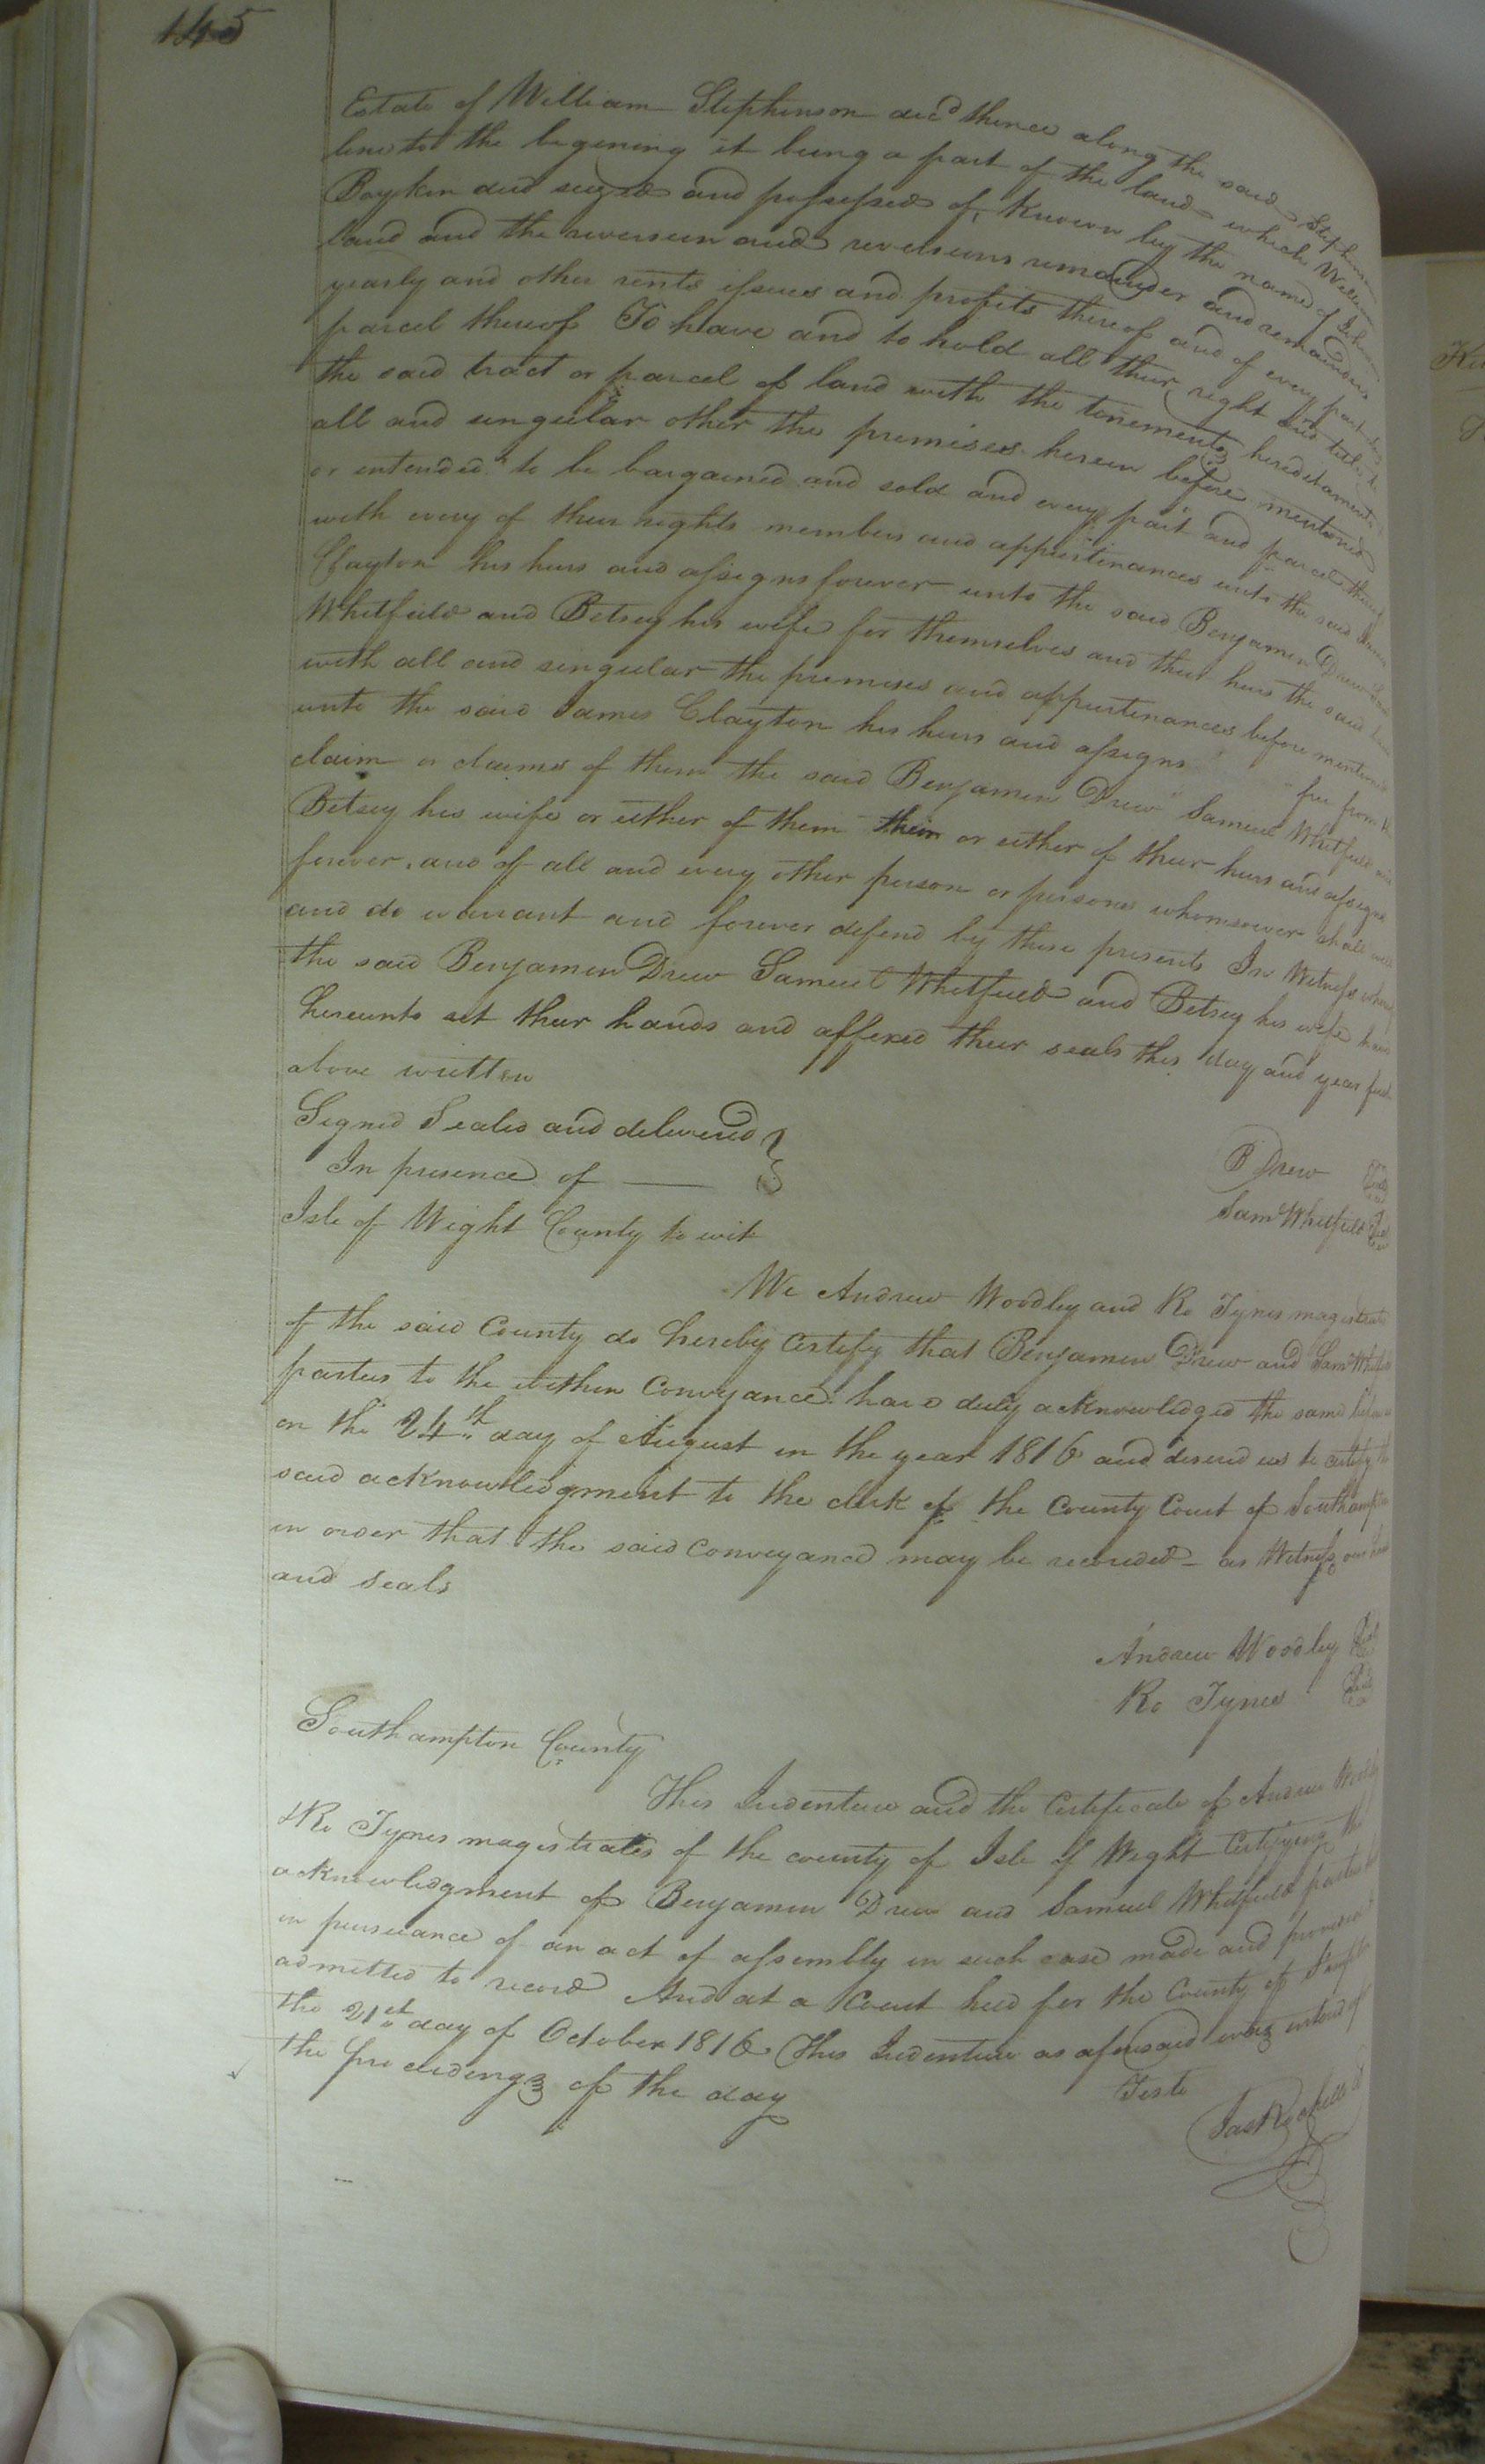 145
Estate of William Stephenson decd thence along the said Stephenson
line to the begening it being a part of the land which William
Boykin died seized and possessed of, known by the name of
land and the reversion and reversions remainder and remainders
yearly and other rents issues and profits thereof and of every part and
parcel thereof To have and to hold all their right and title to
the said tract or parcel of land with the tenements hereditaments
all and singular other the premises herein before mentioned
or intended to be bargained and sold and every part and parcel thereof
with every of their rights members and appurtenances unto the said James
Clayton his heirs and assigns forever unto the said Benjamin Drew
Whitfield and Betsey his wife for themselves and their heirs the said
with all and singular the premises and appurtenances before mentioned
unto the said James Clayton his heirs and assigns free from the
claim or claims of them the said Benjamin Drew Samuel Whitfield and
Betsey his wife or either of them their or either of their heirs and assigns
forever, and of all and every other person or persons whomsoever shall will
and do warrant and forever defend by these presents In Witness whereof
the said Benjamin Drew Samuel Whitfield and Betsey his wife have
hereunto set their hands and affixed their seals this day and year first
above written
Signed Sealed and delivered
In presence of
B Drew Seal
Saml Whitfield Seal
Isle of Wight County to wit
We Andrew Woodley and Ro Tynes magistrates
of the said County do hereby Certify that Benjamin Drew and Saml Whitfield
parties to the within Conveyance have duly acknowledged the same before us
on the 24th day of August in the year 1816 and desired us to certify the
said acknowledgment to the clerk of the County Court of Southampton
in order that the said conveyance may be recorded - as Witness our hands
and seals
Andrew Woodley Seal
Ro Tynes Seal
Southampton County
This Indenture and the Certificate of Andrew Woodley
& Ro Tynes magistrates of the county of Isle of Wight Certifying the
acknowledgment of Benjamin Drew and Samuel Whitfield parties
in pursuance of an act of assembly in such case made and provided
admitted to record And at a Court held for the County of
the 21st day of October 1816 This Indenture as aforesaid was entered of
the proceedings of the day
Teste
Jas Rochelle